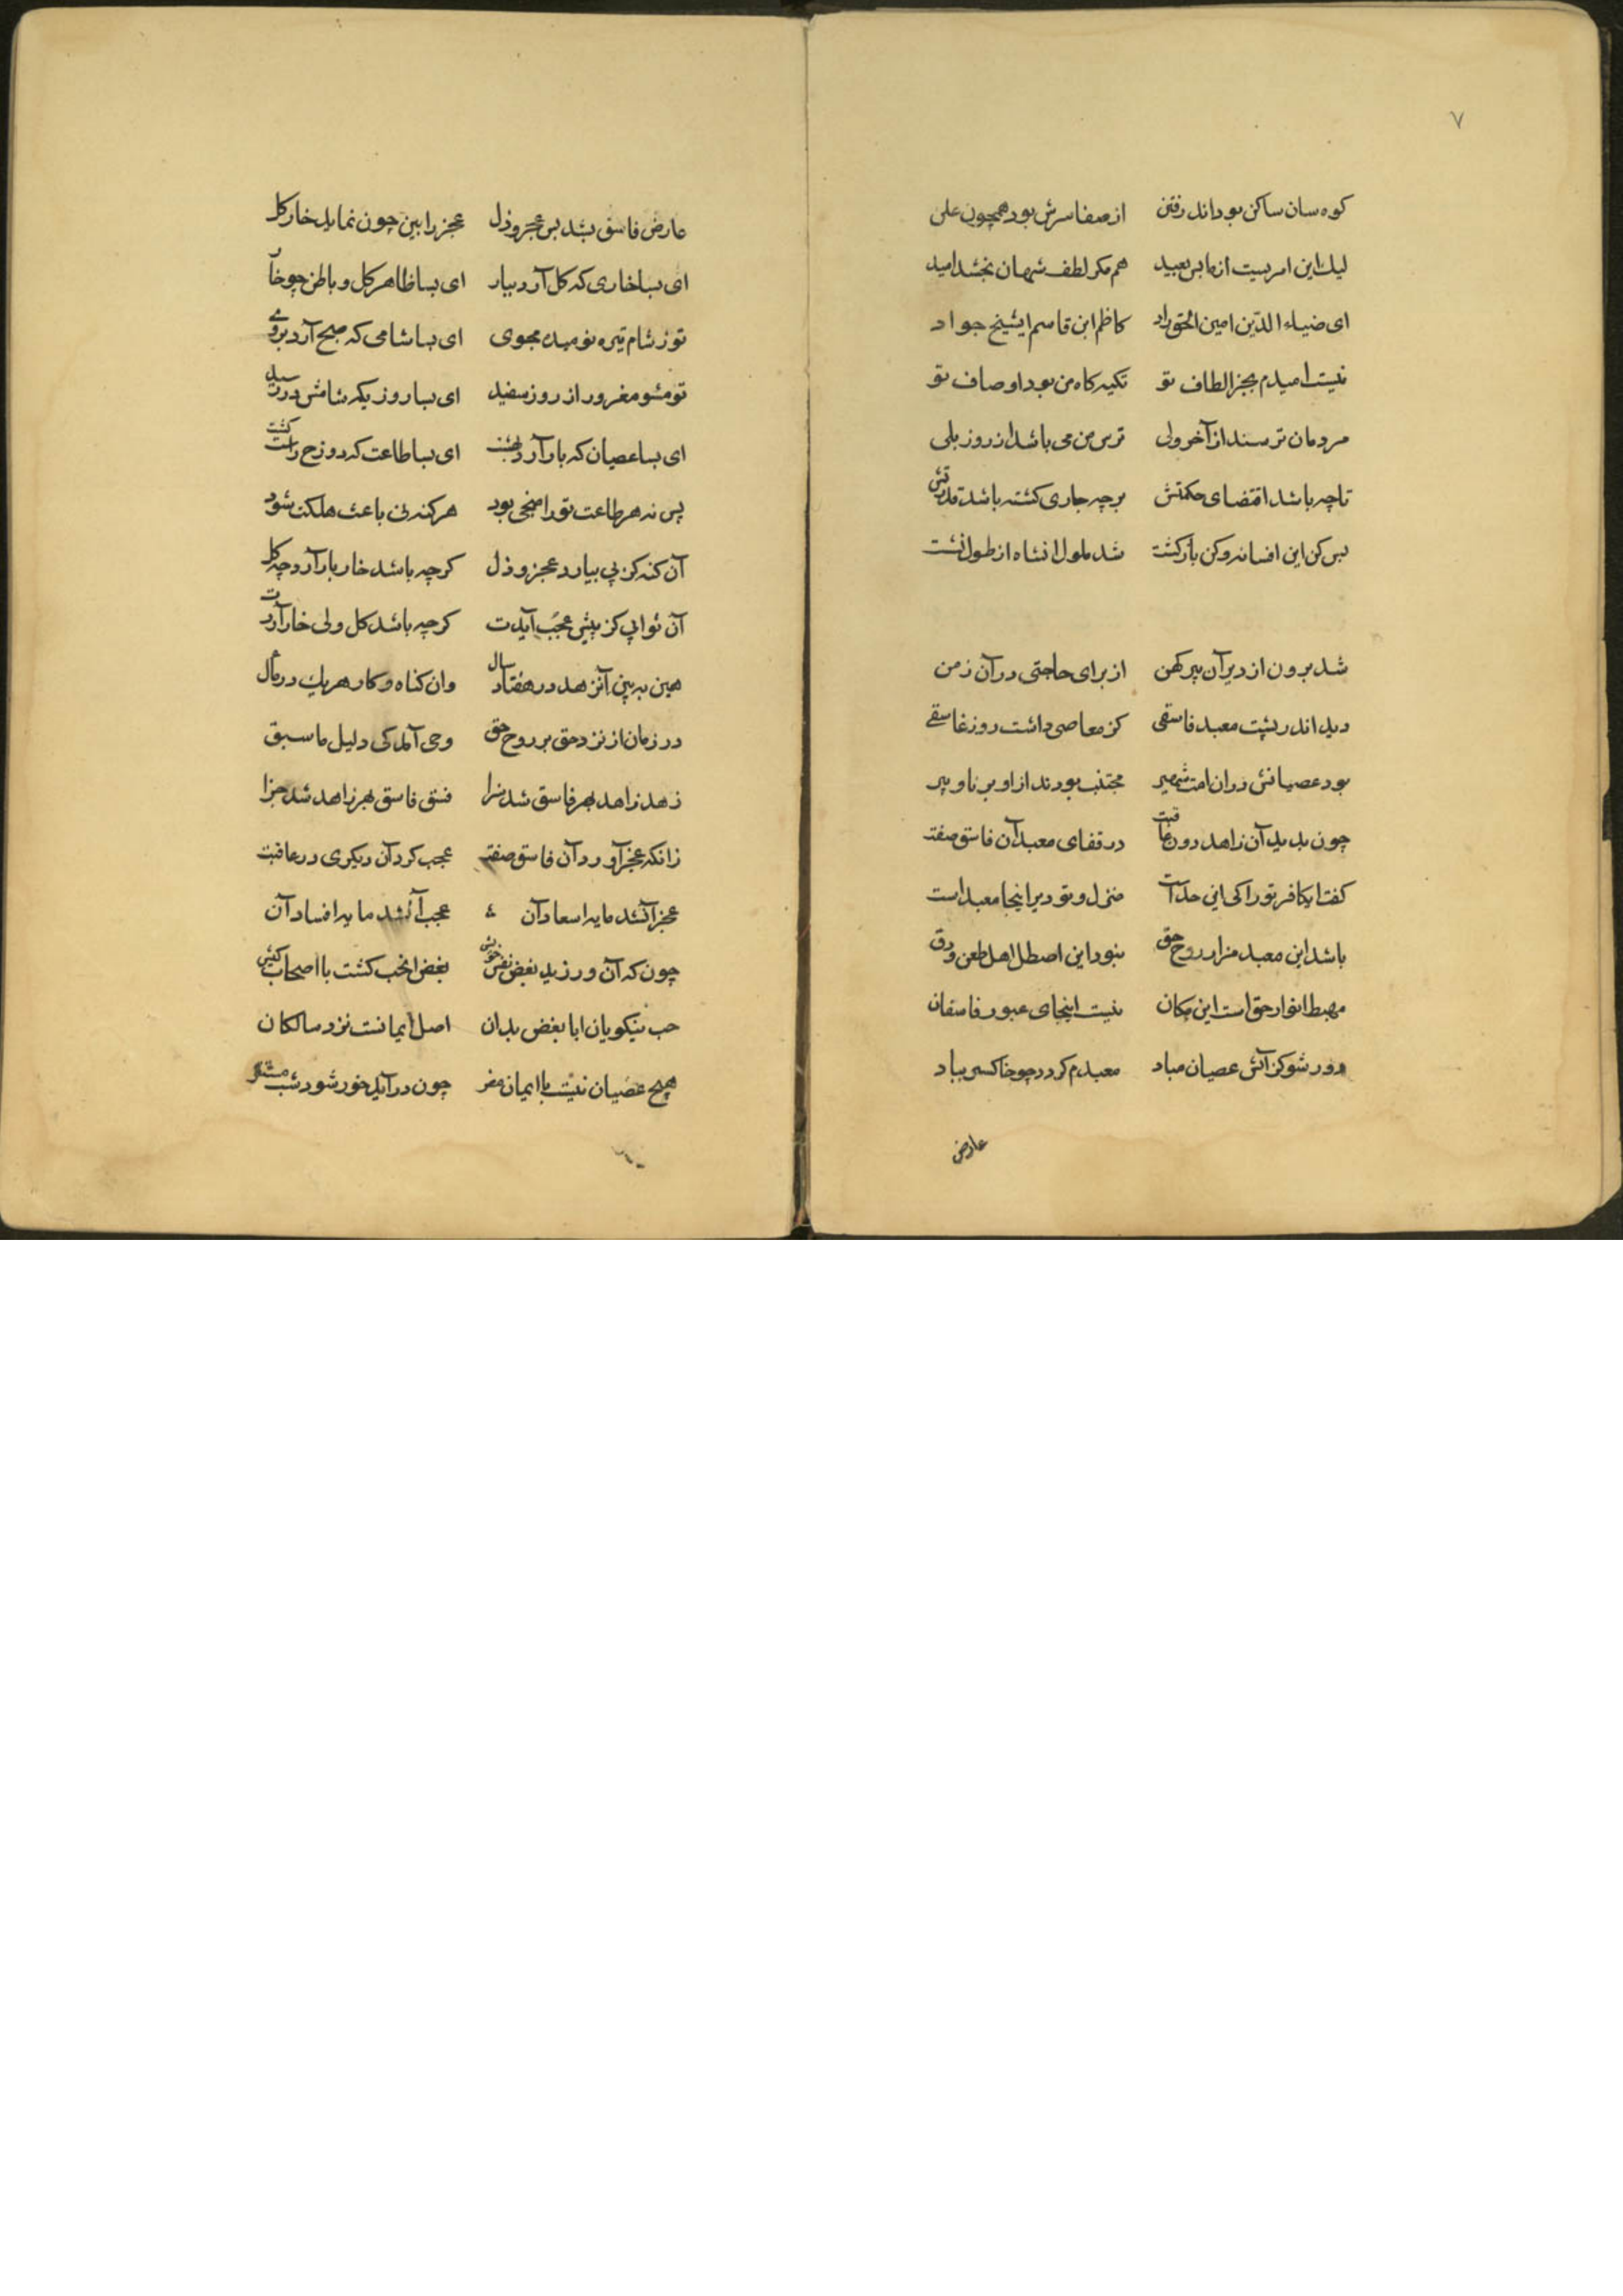 ۷
کوه سان ساکن بود اندر رفتن از صفا سرش بود همچون علی
لیك این امریست از ما بس بعید هم مکر لطف شهان بخشد امید
ای ضیاء الدین امین الحق راد کاظم ابن قاسم ایشیخ جواد
نیست امیدم بجز الطاف تو تکیه کاه من بود اوصاف تو
مردمان ترسند از آخر ولی ترس من می باشد از روز بلی
تا چه باشد اقتضای حکمتش بر چه جاری کشته باشد قدرتش
بس کن این افسانه و کن باز کشت شد ملول انشاه از طول نشست
شد برون از دیر آن پیر کهن از برای حاجتی در آن زمن
دید اندر پشت معبد فاسقی کز معاصی داشت روز غاسقی
بود عصیانش در ان امت شهیر مجتنب بودند از او برنا و پیر
چون بدید آن زاهد دون عاقبت در قفای معبد آن فاسق صفت
کفت ایکافر تو را کی این حد است منزل و تو دیر اینجا معبد است
باشد این معبد مزار روح حق نبود این اصطبل اهل طعن و دق
مهبط انوار حق است این مکان نیست اینجای عبور فاسقان
دور شو کز آتش عصیان مباد معبدم کردد چو خاکستر بباد
عارض
عارض فاسق بشد بس عجز و ذل عجز را بین چون نماید خار کل
ای بسا خاری که کل آرد ببار ای بسا ظاهر کل و باطن چو خار
تو ز شام تیره نومیدی مجوی ای بسا شامی که صبح آرد بروی
تو مشو مغرور از روز سفید ای بسا روزیکه شامش در رسید
ای بسا عصیان که بار آرد بهشت ای بسا طاعت که دوزخ راست کشت
پس نه هر طاعت تو را منجی بود هر کنه نی باعث هلکت شود
آن کنه کز پی بیارد عجز و ذل کرچه باشد خار بار آرد چه کل
آن ثوابی کز پیش عجب آیدت کرچه باشد کل ولی خار آردت
هین ببین آنزهد در هفتاد سال وان کناه و کار هر یك در مآل
در زمان از نزد حق بر روح حق وحی آمد کی دلیل ما سبق
زهد زاهد بهر فاسق شد سزا فسق فاسق بهر زاهد شد جزا
زانکه عجز آورد آن فاسق صفت عجب کرد آن دیکری در عاقبت
عجز آنشد مایه اسعاد آن عجب آنشد مایه افساد آن
چون که آن ورزید بغض نفس خویش بغض انخب کشت با اصحاب کیش
حب نیکویان ابا بغض بدان اصل ایمانست نزد سالکان
هیچ عصیان نیست با ایمان مضر چون در آید خور شود شب مستتر